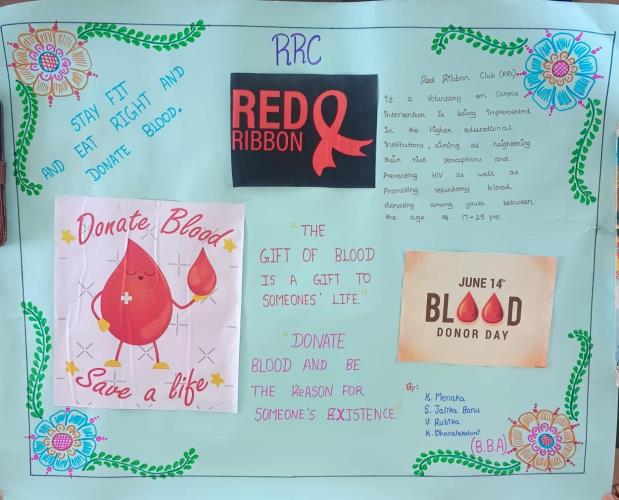 RRC
STAY FIT
AND EAT RIGHT AND
DONATE BLOOD.
RED
RIBBON
Red Ribbon Club (RRC)
is a Voluntary on Campus
intervention is being implemented
in the Higher educational
institutions, aiming as heightening
their risk perceptions and
Preventing HIV as well as
Promoting Voluntary blood
donating among youth between
the age of 17-25 yrs.
Donate Blood
Save a life
"THE
GIFT OF BLOOD
IS A GIFT TO
SOMEONES' LIFE."
"DONATE
BLOOD AND BE
THE REASON FOR
SOMEONE'S EXISTENCE."
JUNE 14th
BLOOD
DONOR DAY
By:
K. Menaka
S. Jalika Banu
V. Rubika
K. Dhanalakshmi
(B.B.A)